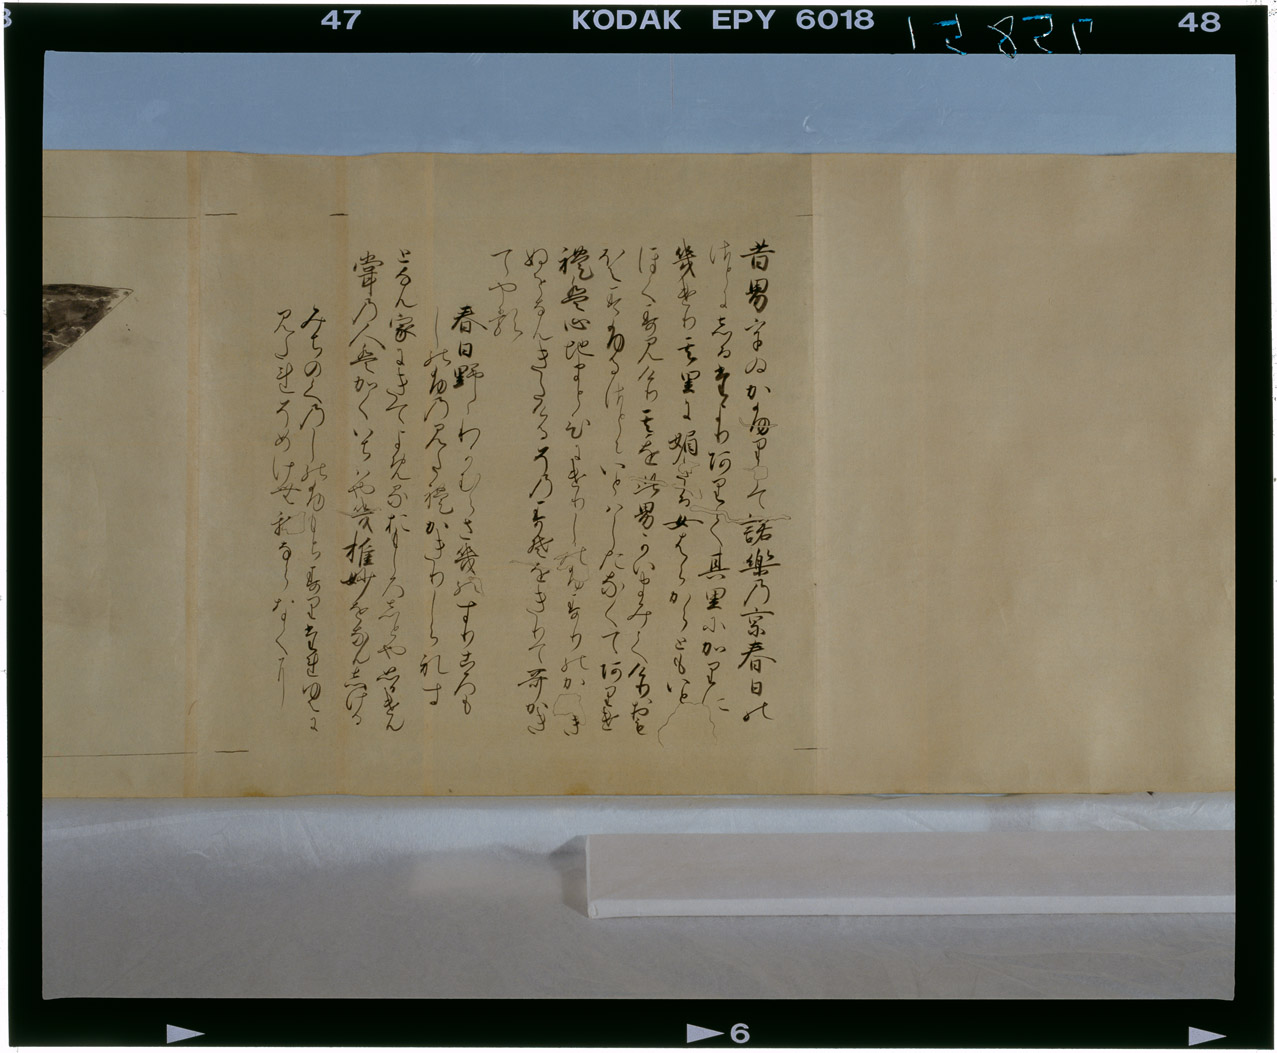 KODAK EPY 6018
47
48
15857
昔男宇ゐかうふりして諾樂乃京春日の
さとにしるたよりありて其里に加里に
幾けり其里に媚たる女はらからともいと
ほくす見けり其を此男かいまみてけりおも
ほえすふるさとにいとはしたなくてありけ
禮は心地まとひにけりしのふすりのかりき
ぬをなんきたりけるその
をきりて哥かき
てやる
春日野のわかむらさ幾のすりころも
しのふ乃見た禮かきりしられす
となん家にきて
おもしろ
常乃人はかくいちはや
雅妙をなんしける
みちのく乃しのふもちすりたれゆへに
見たれそめにし我ならなくに
6